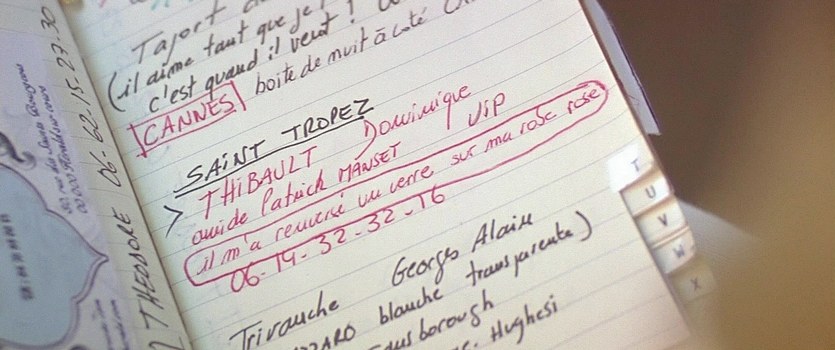 Tajort
(il aime tant que je!
c'est quand il veut!
CANNES boite de nuit à côté
SAINT TROPEZ
> THIBAULT Dominique
amide Patrick MANSET | VIP
il m'a renversé un verre sur ma robe rose
06-14-32-32-16
Trivauche Georges Alain
blanche transparente)
sborough
Hughesi
THEODORE 06-62.15-27.30
T
U
V
W
X